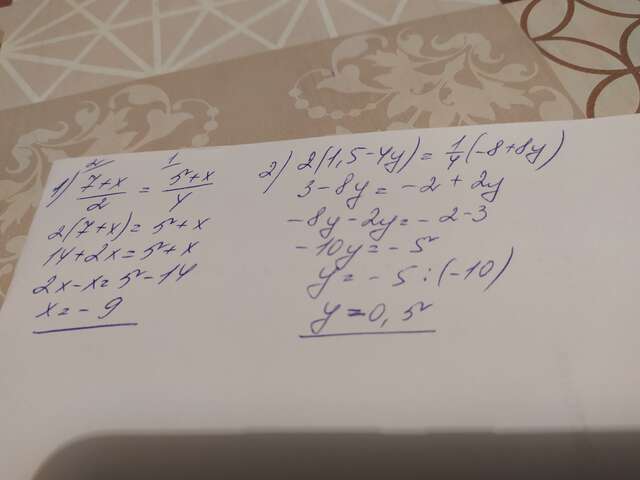 1) (7+x)/2 = (5+x)/4
2(7+x)=5+x
14+2x=5+x
2x-x=5-14
x=-9
2) 2(1,5-4y)=1/4(-8+8y)
3-8y=-2+2y
-8y-2y=-2-3
-10y=-5
y=-5:(-10)
y=0,5